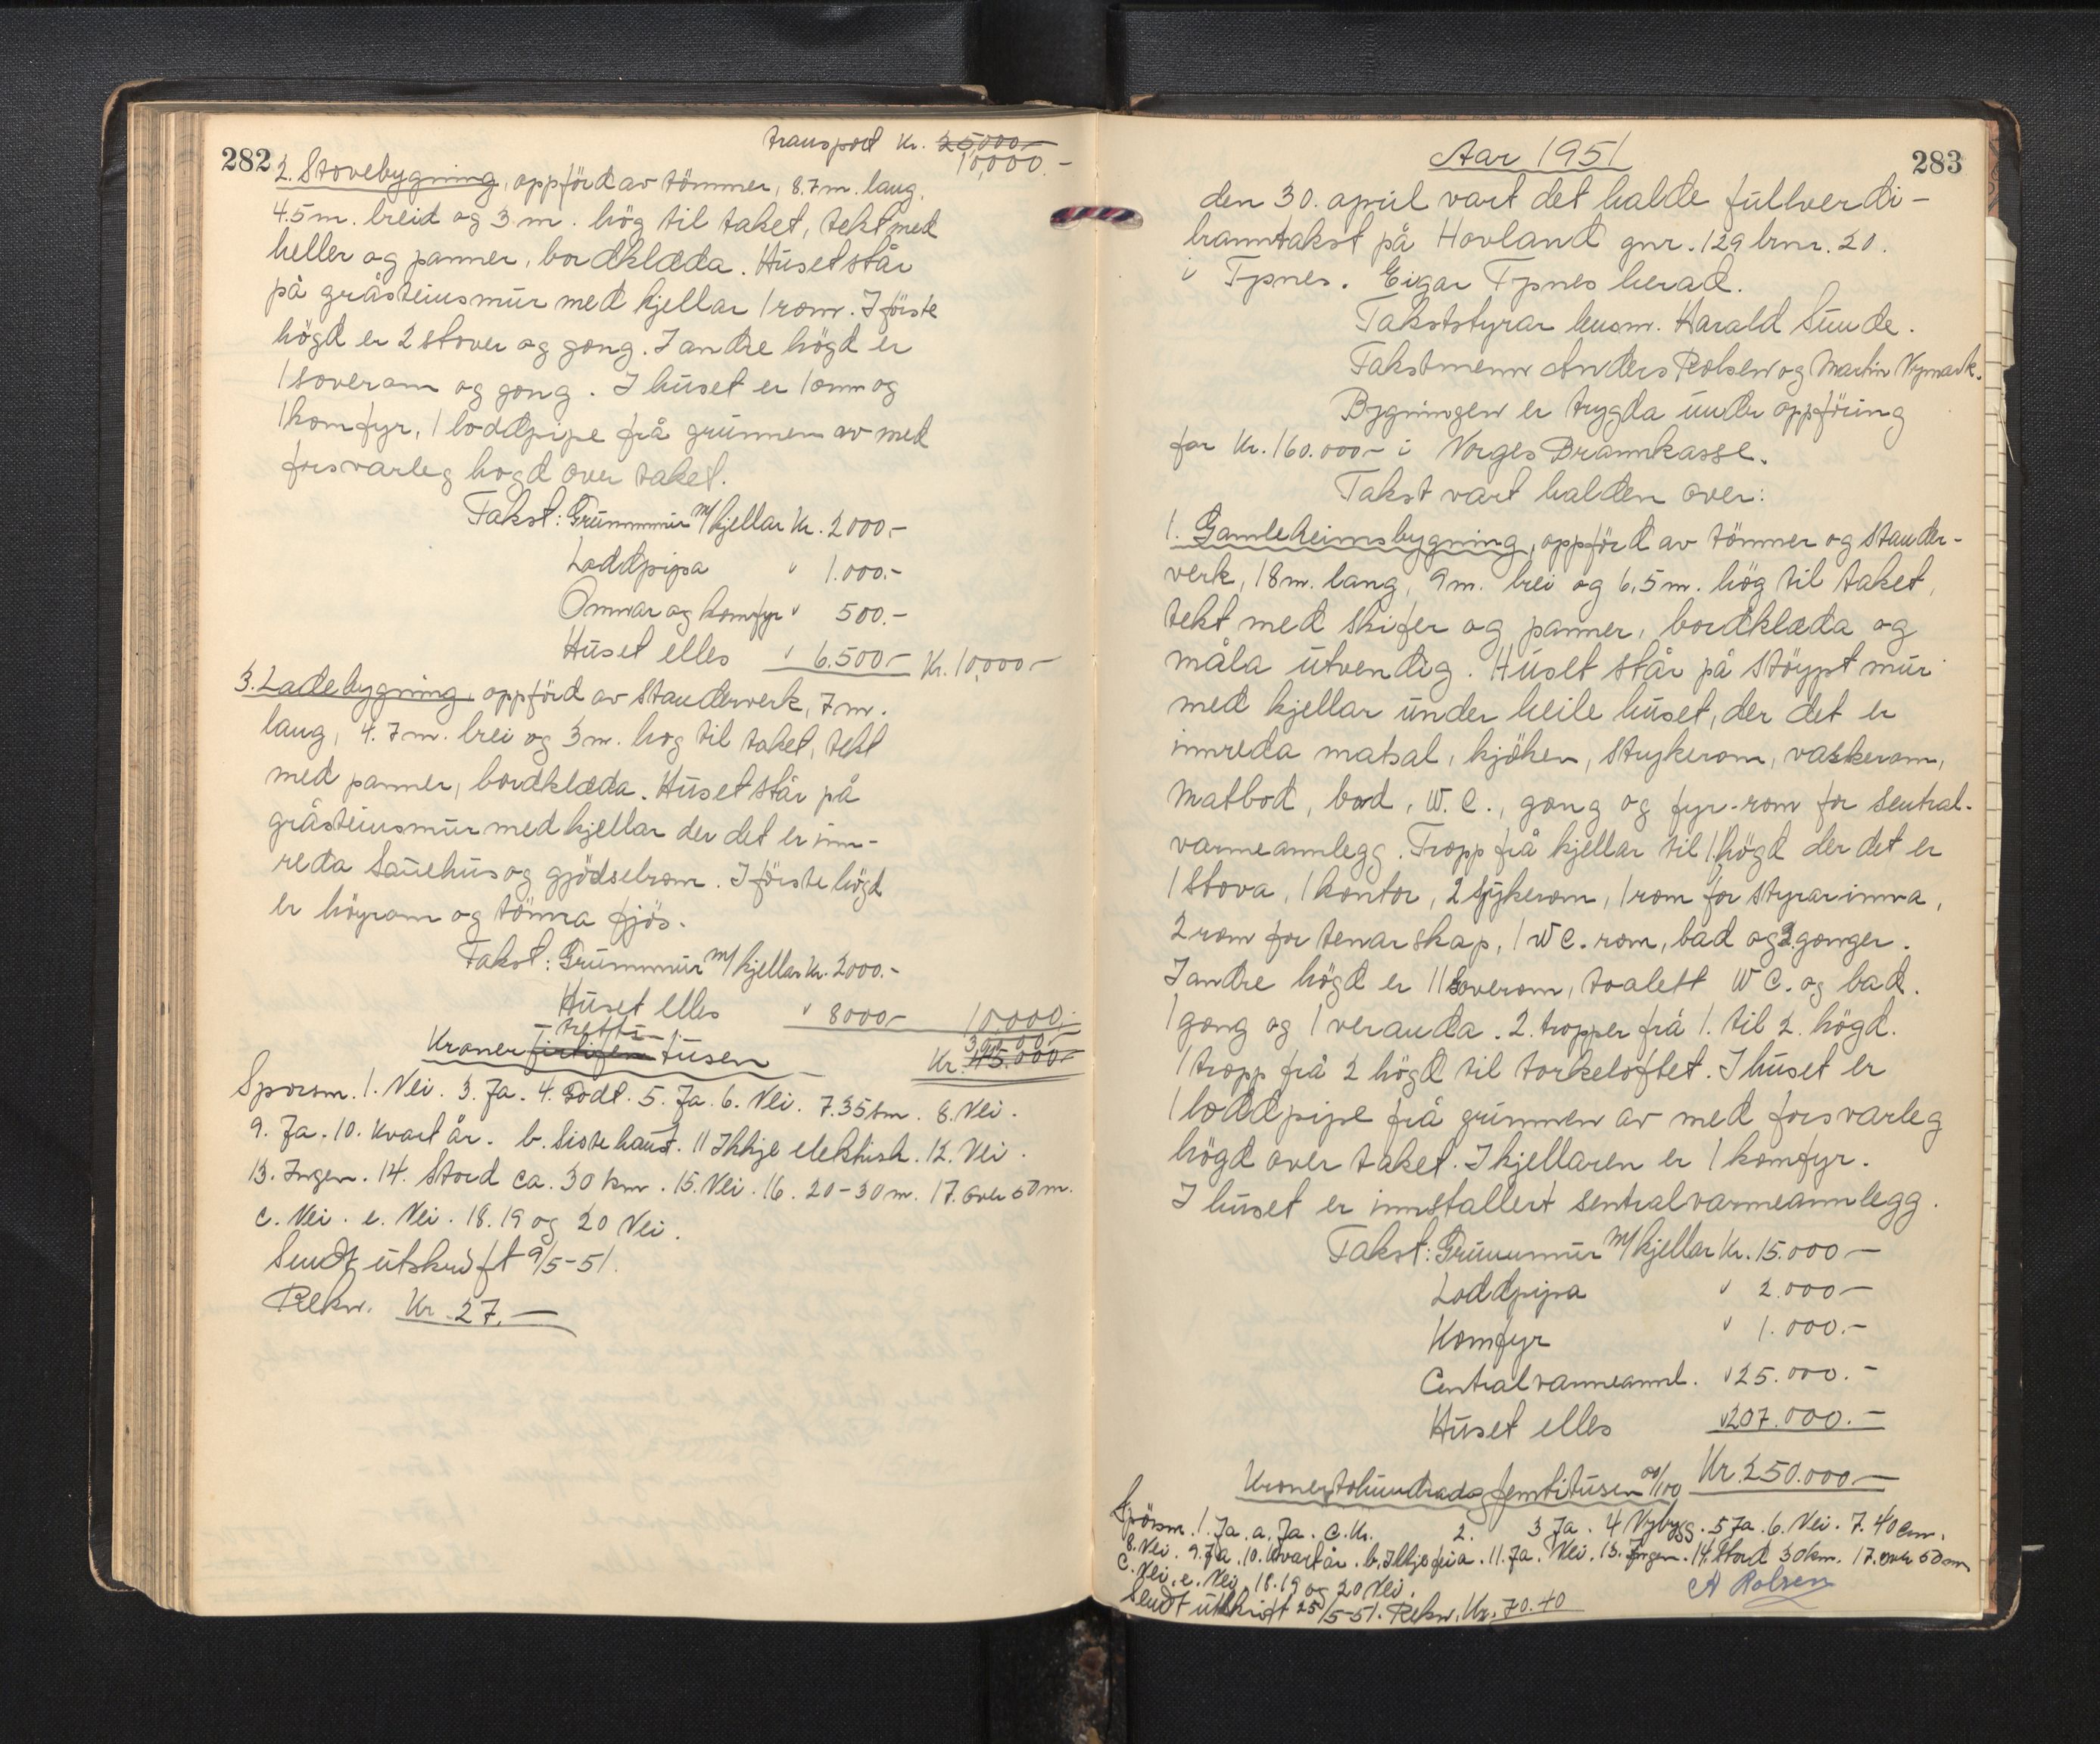 282
transport Kr. 25.000,-
10,000.-
2. Stovebygning, oppförd av tömmer, 8.7 m. lang,
4.5 m. breid og 3 m. hög til taket, tekt med
heller og panner, bordklæda. Huset står
på gråsteinsmur med kjellar 1 rom. I förste
högd er 2 stover og gong. I andre högd er
1 soverom og gong. I huset er 1 omn og
1 komfyr, 1 loddpipe frå grunnen av med
forsvarleg hogd over taket.
Takst: Grunnmur m/kjellar Kr. 2000.-
Loddpipa " 1.000.-
Omnar og komfyr " 500.-
Huset elles " 6.500.- Kr. 10,000.-
3. Ladebygning, oppförd av standerverk, 7 m.
lang, 4.7 m. brei og 3 m. hog til taket, tekt
med panner, bordklæda. Huset står på
gråsteinsmur med kjellar der det er inn-
reda sauehus og gjödselrom. I förste högd
er höyrom og tömra fjös.
Takst: Grunnmur m/kjellar Kr. 2000.-
Huset elles " 8000.- 10,000.-
- tretti - 30.000.-
Kroner förtifem tusen Kr. 45.000.-
Spørsm. 1. Nei. 3. Ja. 4. Godt. 5. Ja. 6. Nei. 7. 35 sm. 8. Nei.
9. Ja. 10. Kvart år. b. Siste haust. 11 Ikkje elektrisk. 12. Nei.
13. Ingen. 14. Stord ca. 30 km. 15. Nei. 16. 20-30 m. 17. over 50 m.
c. Nei. e. Nei. 18. 19 og 20 Nei.
Sendt utskrift 9/5-51.
Rekv. Kr. 27.-
283
Aar 1951
den 30. april vart det halde fullverdi-
branntakst på Hovland gnr. 129 brnr. 20.
i Tysnes. Eigar Tysnes herad.
Takststyrar lensm. Harald Sunde.
Takstmenn Anders Rolsen og Martin Nymark.
Bygningen er trygda under oppföring
for Kr. 160.000.- i Norges Brannkasse.
Takst vart halden over:
1. Gamleheimsbygning, oppförd av tömmer og stander-
verk, 18 m. lang, 9 m. brei og 6,5 m. hög til taket,
tekt med skifer og panner, bordklæda og
måla utvendig. Huset står på stöypt mur
med kjellar under heile huset, der det er
innreda matsal, kjöken, strykerom, vaskerom,
matbod, bod, W.C., gong og fyr-rom for sentral-
varmeannlegg. Tropp frå kjellar til 1. högd der det er
1 stova, 1 kontor, 2 sjukerom, 1 rom for styrarinna,
2 rom for tenarskap, 1 WC. rom, bad og 2 gonger.
I andre högd er 11 soverom, toalett WC. og bad.
1 gong og 1 veranda. 2. tropper frå 1. til 2. högd.
1 tropp frå 2 högd til torkeloftet. I huset er
1 loddpipe frå grunnen av med forsvarleg
högd over taket. I kjellaren er 1 komfyr.
I huset er innstallert sentralvarmeannlegg.
Takst: Grunnmur m/kjellar Kr. 15.000.-
Loddpipa " 2.000.-
Komfyr " 1.000.-
Centralvarmeannl. " 25.000.-
Huset elles " 207.000.-
Kronertohundradogfemtitusen 00/100 Kr. 250.000.-
Spörsm. 1. Ja. a. Ja. c. Kr. 2. 3 Ja. 4 Nybygg. 5 Ja. 6. Nei. 7. 40 cm.
8. Nei. 9. Ja. 10. Kvart år. b. Ikkje feia. 11. Ja. Nei. 13. Ingen. 14. Stord 30 km. 17. over 50 m
c. Nei. e. Nei. 18. 19 og 20 Nei.
A Rolsen
Sendt utskrift 25/5-51. Rekv. Kr. 70.40